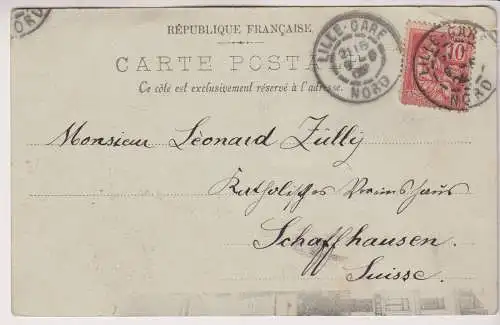 RÉPUBLIQUE FRANÇAISE
CARTE POSTA
Ce côté est exclusivement réservé à l'adresse.
LILLE-GARE
NORD
10
LILLE
NORD
NORD
Monsieur Léonard Zülly
Katholisches Vereinshaus
Schaffhausen.
Suisse.